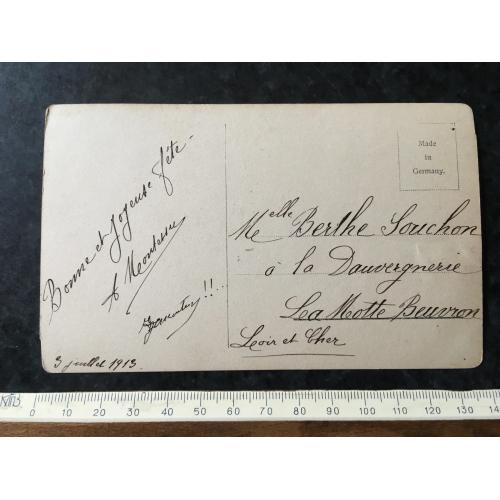 Bonne et Joyeuse fête -
3 juillet 1913.
Made
in
Germany.
Melle Berthe Souchon
à la Dauvergnerie
La Motte Beuvron
Loir et Cher
0 10 20 30 40 50 60 70 80 90 100 110 120 130 14